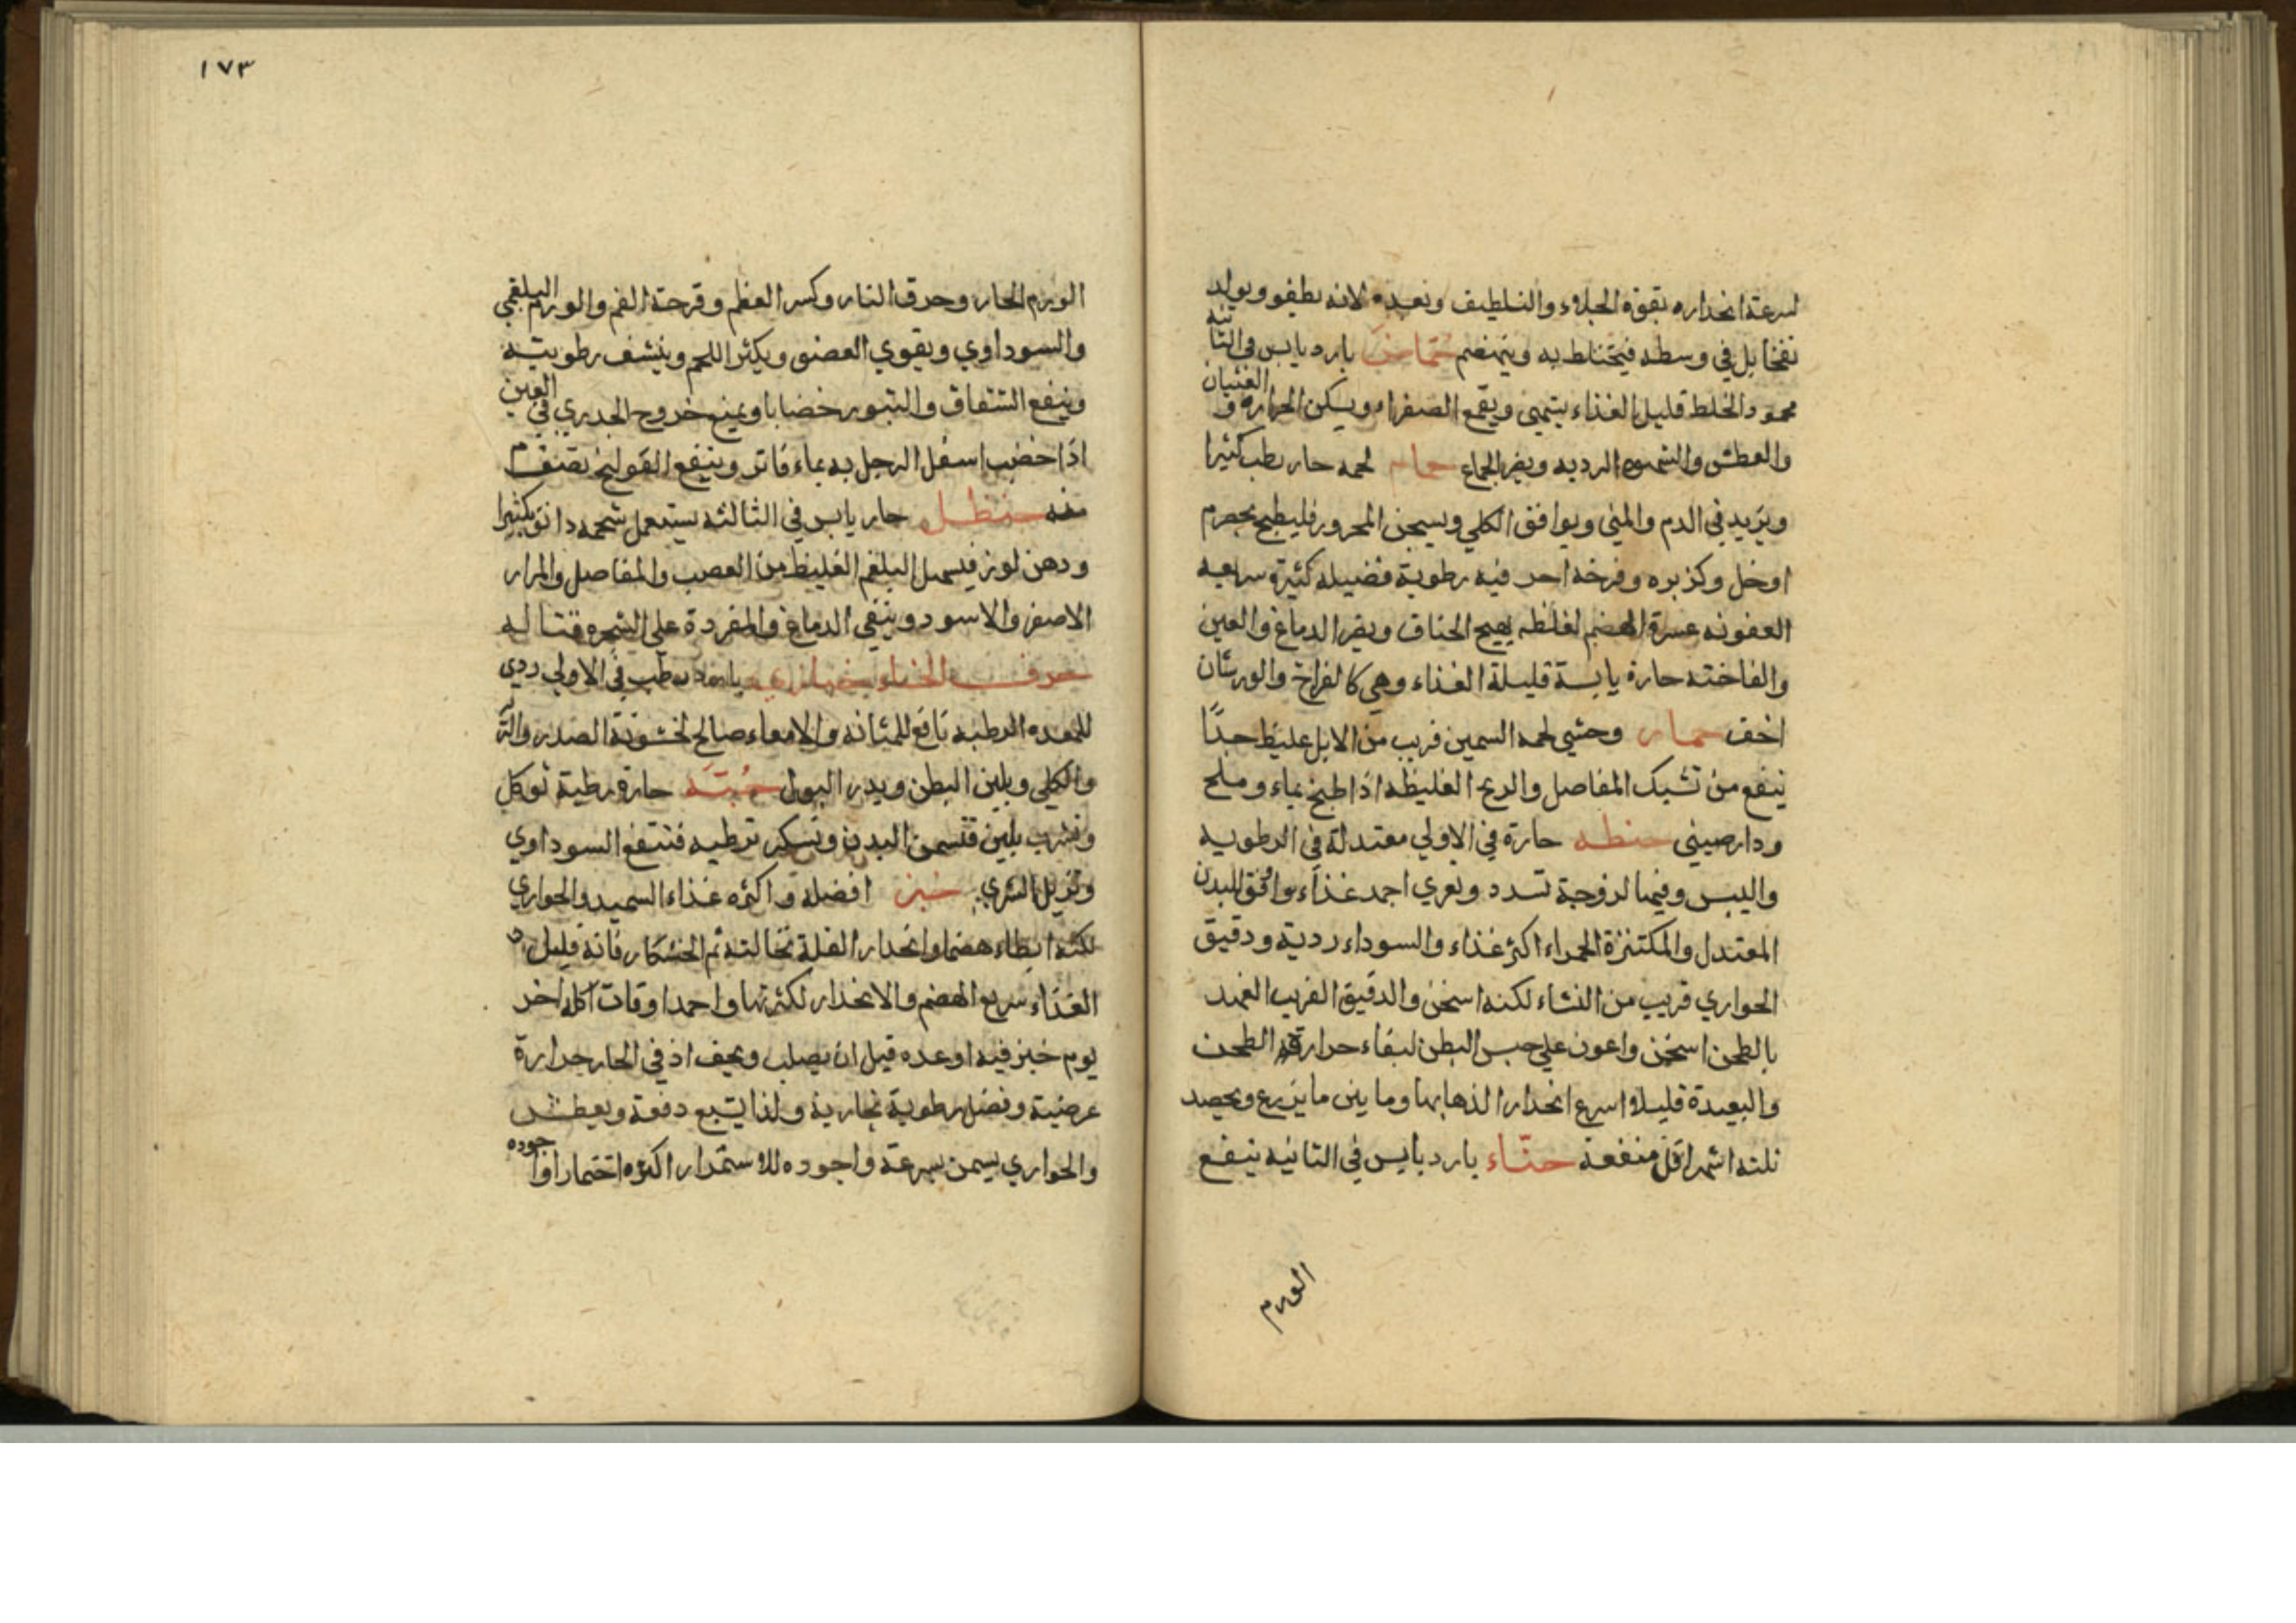 لسرعة انحداره بقوة الجلاء والتلطيف وبعده لانه يطفو ويولد
نفخا بل في وسطه فيختلط به وينهضم حماض بارد يابس في الثانيه
محمود الخلط قليل الغذاء يشهي ويقمع الصفراء ويسكن الحرارة و الغثيان
والعطش والسموم الرديه ويضر الجماع حمام لحمه حار رطب كثيرا
ويزيد في الدم والمني ويوافق الكلي ويسخن المحرور فليطبخ بحصرم
او خل وكزبره وفرخه احر فيه رطوبة فضيله كثيرة سريعه
العفونه عسرة الهضم لغلظه يهيج الخناق ويضر الدماغ والعين
والفاخته حارة يابسة قليلة الغذاء وهي كالفراخ والورشان
اخف حمار وحشي لحمه السمين قريب من الابل غليظ جدًا
ينفع من تشبك المفاصل والريح الغليظه اذا طبخ بماء وملح
ودارصيني حنطه حارة في الاولي معتدلة في الرطوبه
واليبس وفيها لزوجة تسدد وتغري احمد غذاء وافق للبدن
المعتدل والمكتنزة الحمراء اكثر غذاء والسوداء ردية ودقيق
الحواري قريب من النشاء لكنه اسخن والدقيق القريب العهد
بالطحن اسخن واعون علي حبس البطن لبقاء حرارة الطحن
والبعيدة قليلا اسرع انحدارا لذهابها وما بين ما يزرع ويحصد
ثلثه اشهر اقل منفعة حنّاء بارد يابس في الثانيه ينفع
الورم
١٧٣
الورم الحار وحرق النار وكسر العظم وقرحة الفم والورم البلغمي
والسوداوي ويقوي العضو ويكثر اللحم وينشف رطوبته
وينفع الشقاق والبثور خضابا ويمنع خروج الجدري في العين
اذا خضب اسفل الرجل به بماء فاتر وينفع القولنج بصنف
منه حنظل حار يابس في الثالثه يستعمل شحمه دانق بكثيرا
ودهن لوز فيسهل البلغم الغليظ من العصب والمفاصل والمرار
الاصفر والاسود وينقي الدماغ والمفردة علي الشجره قتاله
حرف الخاء خبازي بارد رطب في الاولي ردي
للمعده الرطبه نافع للمثانه والامعاء صالح لخشونة الصدر والرئة
والكلي ويلين البطن ويدر البول حارة رطبة توكل
وتشرب بلبن فتسمن البدن وتسكر ترطبه فتنفع السوداوي
وتزيل الشري خبز افضله واكثره غذاء السميد والحواري
لكنه ابطاء هضما وانحدارا لقلة نخالته ثم الخشكار فانه قليل
الغذاء سريع الهضم والانحدار لكثرتها واحمد اوقات اكله اخر
يوم خبز فيه او غده قبل ان يصلب ويجف اذ في الحار حرارة
عرضية وفضل رطوبة بخارية ولذا يشبع دفعة ويعطش
والحواري يسمن بسرعة واجوده للاستمرار اكثره اختمارا واجوده